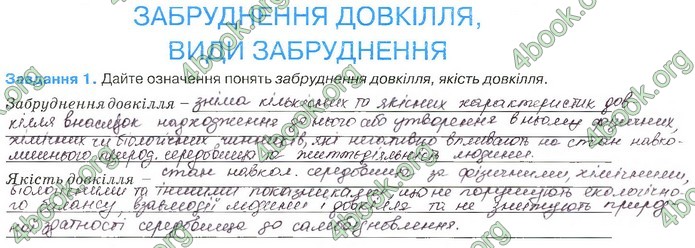 ЗАБРУДНЕННЯ ДОВКІЛЛЯ,
ВИДИ ЗАБРУДНЕННЯ
Завдання 1. Дайте означення понять забруднення довкілля, якість довкілля.
Забруднення довкілля – зміна кількісних та якісних характеристик дов
кілля внаслідок надходження до нього або утворення в ньому фізичних
хімічних чи біологічних чинників, які негативно впливають на стан навко-
лишнього природ. середовища та життєдіяльність людини.
Якість довкілля – стан навкол. середовища за фізичними, хімічними,
біологічними та іншими показниками, що не порушують екологічно-
го балансу взаємодії людини і довкілля та не знижують природ
ної здатності середовища до самовідновлення.
4book.org